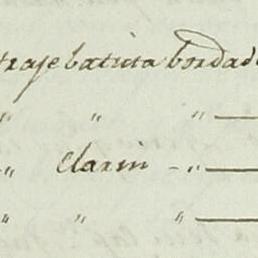 traje batista bordado
" " " —
" clarin - " —
" " " —